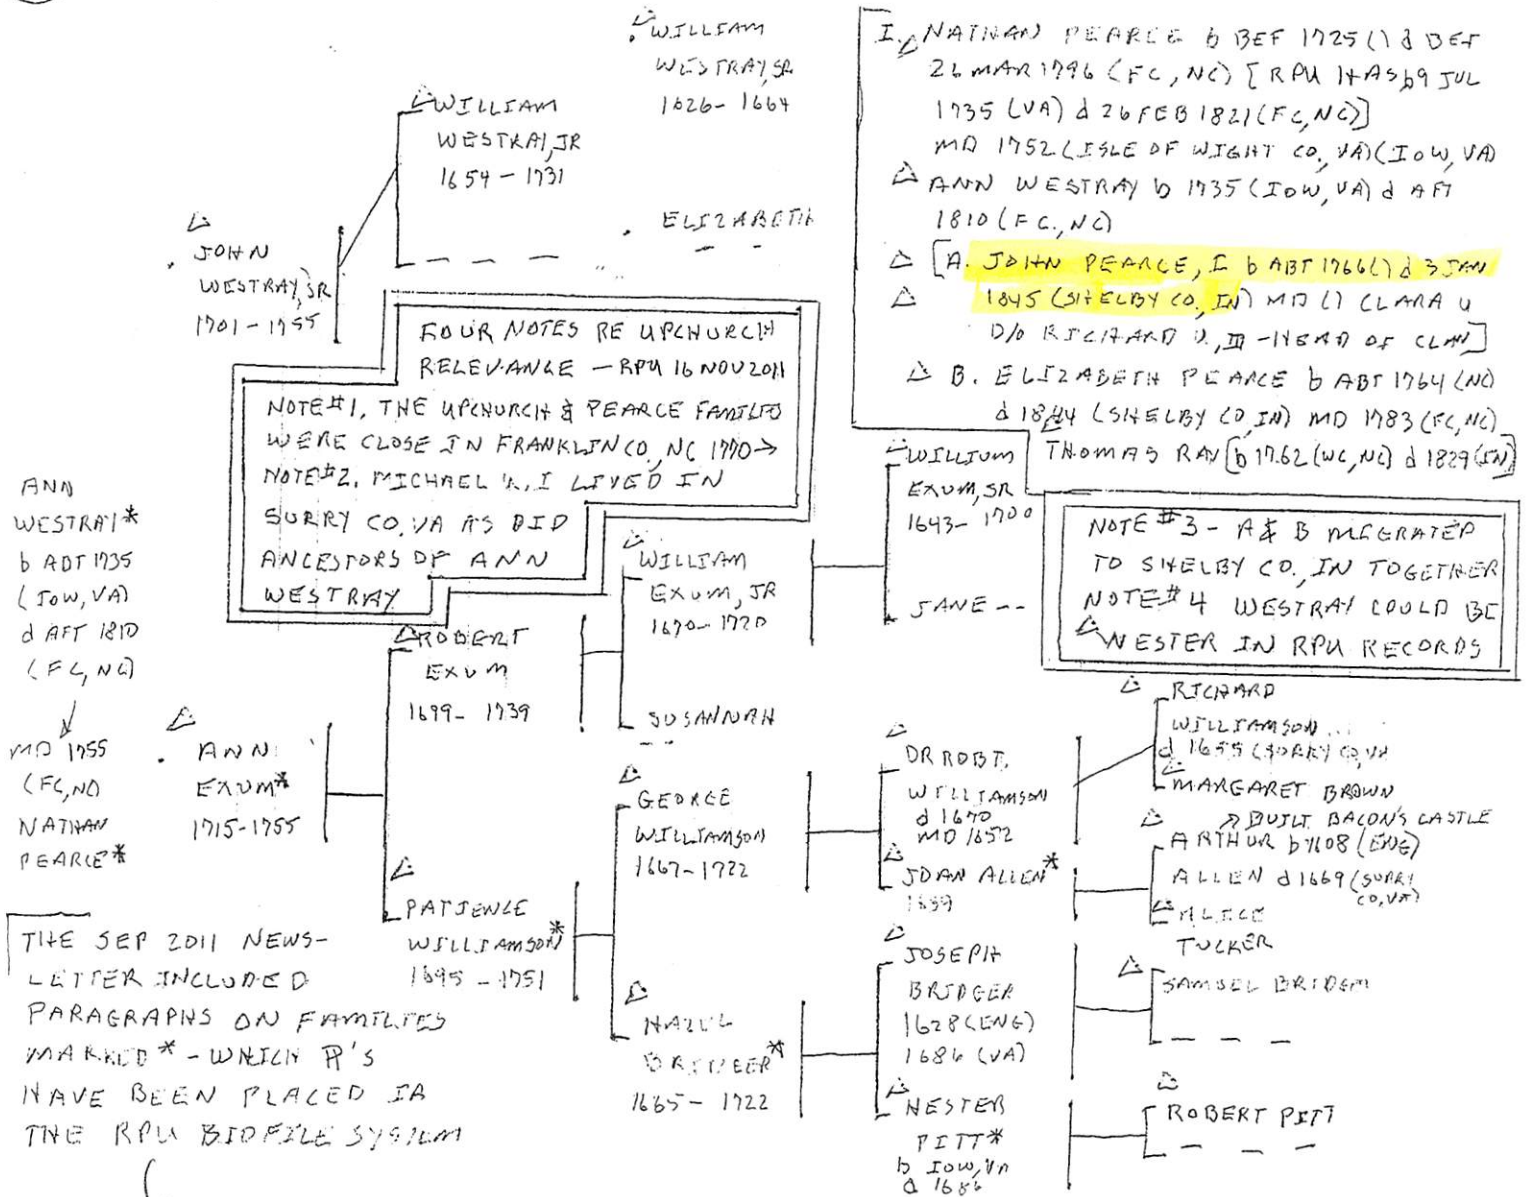 WILLIAM
WESTRAY, SR
1626- 1664
WILLIAM
WESTRAY, JR
1654 - 1731
ELIZABETH
JOHN
WESTRAY, SR
1701 - 1755
I. NATHAN PEARCE b BEF 1725 () d BEF
26 MAR 1796 (FC, NC) [RPU HAS b 9 JUL
1735 (VA) d 26 FEB 1821 (FC, NC)]
MD 1752 (ISLE OF WIGHT CO., VA) (IOW, VA)
ANN WESTRAY b 1735 (IOW, VA) d AFT
1810 (FC., NC)
[A. JOHN PEARCE, I b ABT 1766 () d 3 JAN
1845 (SHELBY CO., IN) MD () CLARA U
D/O RICHARD U., III - HEAD OF CLAN]
B. ELIZABETH PEARCE b ABT 1764 (NC)
d 1844 (SHELBY CO, IN) MD 1783 (FC, NC)
THOMAS RAY [b 1762 (WC, NC) d 1829 (IN)]
FOUR NOTES RE UPCHURCH
RELEVANCE - RPU 16 NOV 2011
NOTE #1. THE UPCHURCH & PEARCE FAMILIES
WERE CLOSE IN FRANKLIN CO., NC 1770→
NOTE #2. MICHAEL U., I LIVED IN
SURRY CO. VA AS DID
ANCESTORS OF ANN
WESTRAY
NOTE #3 - A & B MIGRATED
TO SHELBY CO., IN TOGETHER
NOTE #4 WESTRAY COULD BE
WESTER IN RPU RECORDS
ANN
WESTRAY*
b ABT 1735
(IOW, VA)
d AFT 1810
(FC, NC)
MD 1755
(FC, NC)
NATHAN
PEARCE*
ANN
EXUM*
1715-1755
ROBERT
EXUM
1699- 1739
PATIENCE
WILLIAMSON*
1695 - 1751
WILLIAM
EXUM, JR
1670- 1720
SUSANNAH
GEORGE
WILLIAMSON
1667- 1722
HAZEL
BRIDGER*
1665 - 1722
WILLIUM
EXUM, SR
1643- 1700
JANE --
DR ROBT.
WILLIAMSON
d 1670
MD 1652
JOAN ALLEN*
JOSEPH
BRIDGER
1628 (ENG)
1686 (VA)
HESTER
PITT*
b IOW, VA
d 1686
RICHARD
WILLIAMSON
d 1655 (SURRY CO, VA
MARGARET BROWN
↗ BUILT BACON'S CASTLE
ARTHUR b 1608 (ENG)
ALLEN d 1669 (SURRY
CO, VA)
ALICE
TUCKER
SAMUEL BRIDGER
ROBERT PITT
THE SEP 2011 NEWS-
LETTER INCLUDED
PARAGRAPHS ON FAMILIES
MARKED * - WHICH P'S
HAVE BEEN PLACED IN
THE RPU BIOFILE SYSTEM